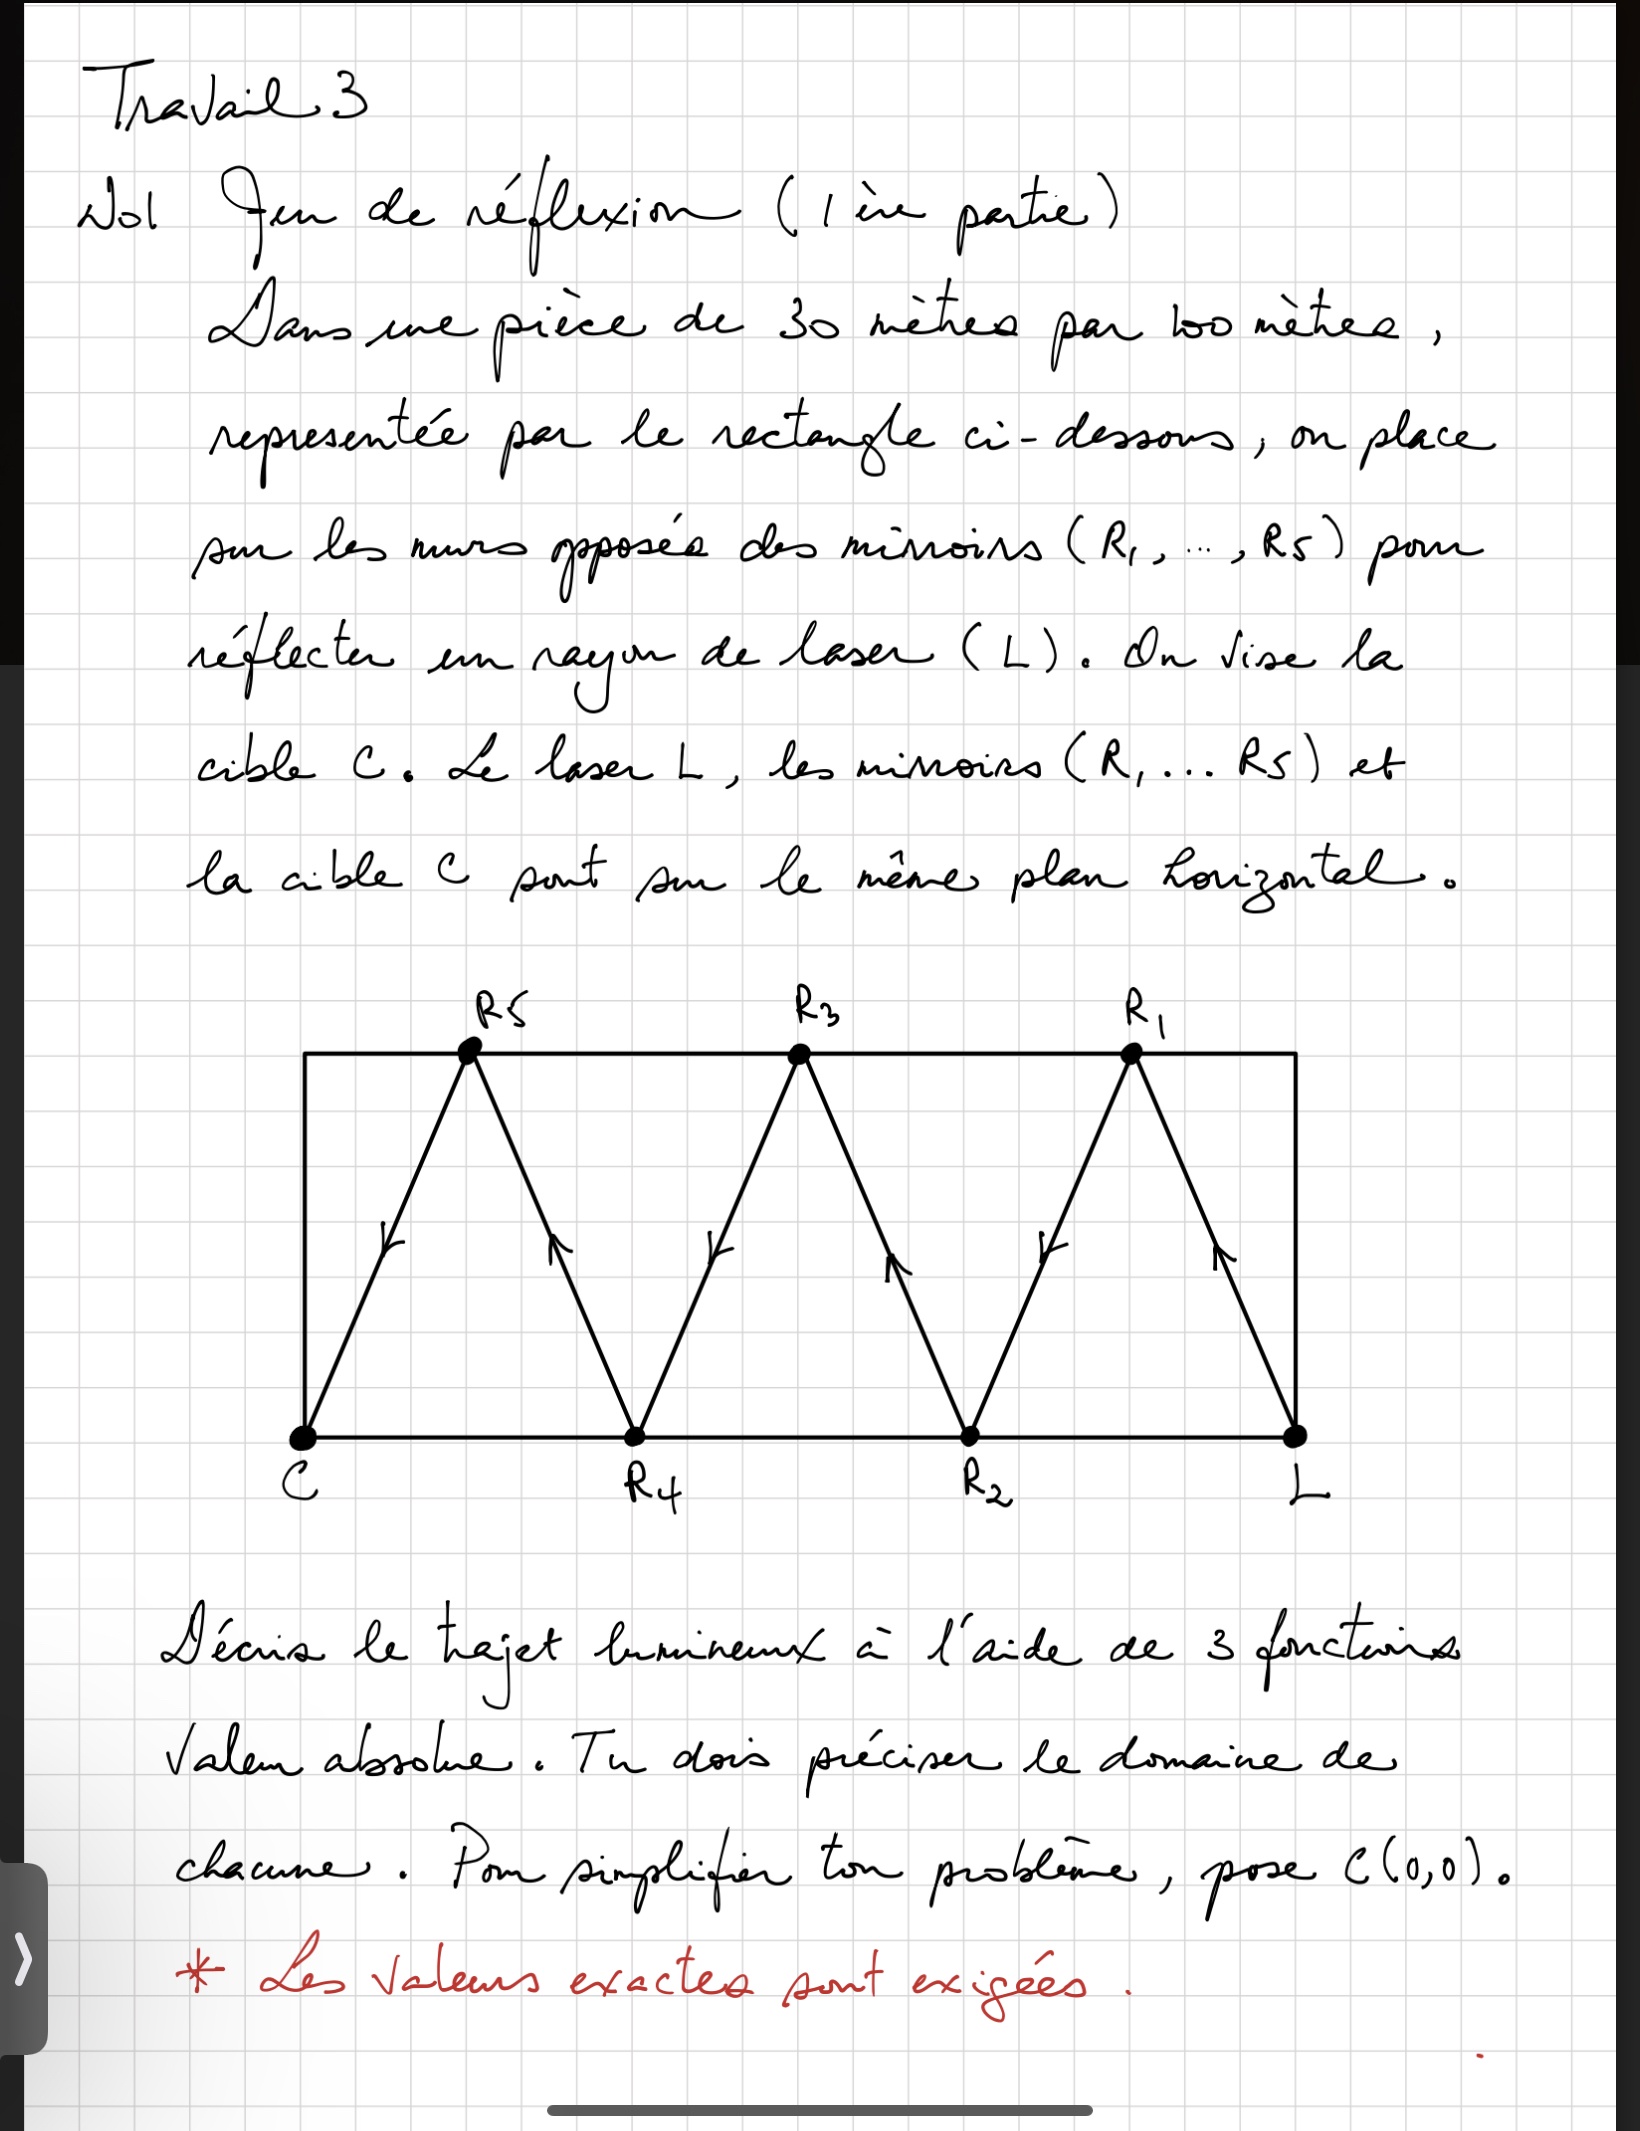 Travail 3
No1 Jeu de réflexion (1ère partie)
Dans une pièce de 30 mètres par 100 mètres,
representée par le rectangle ci-dessous, on place
sur les murs opposés des miroirs (R1, ..., R5) pour
réflecter un rayon de laser (L). On vise la
cible C. Le laser L, les miroirs (R1 ... R5) et
la cible C sont sur le même plan horizontal.
R5 R3 R1
C R4 R2 L
Décris le trajet lumineux à l'aide de 3 fonctions
valeur absolue. Tu dois préciser le domaine de
chacune. Pour simplifier ton problème, pose C(0,0).
* Les valeurs exactes sont exigées.